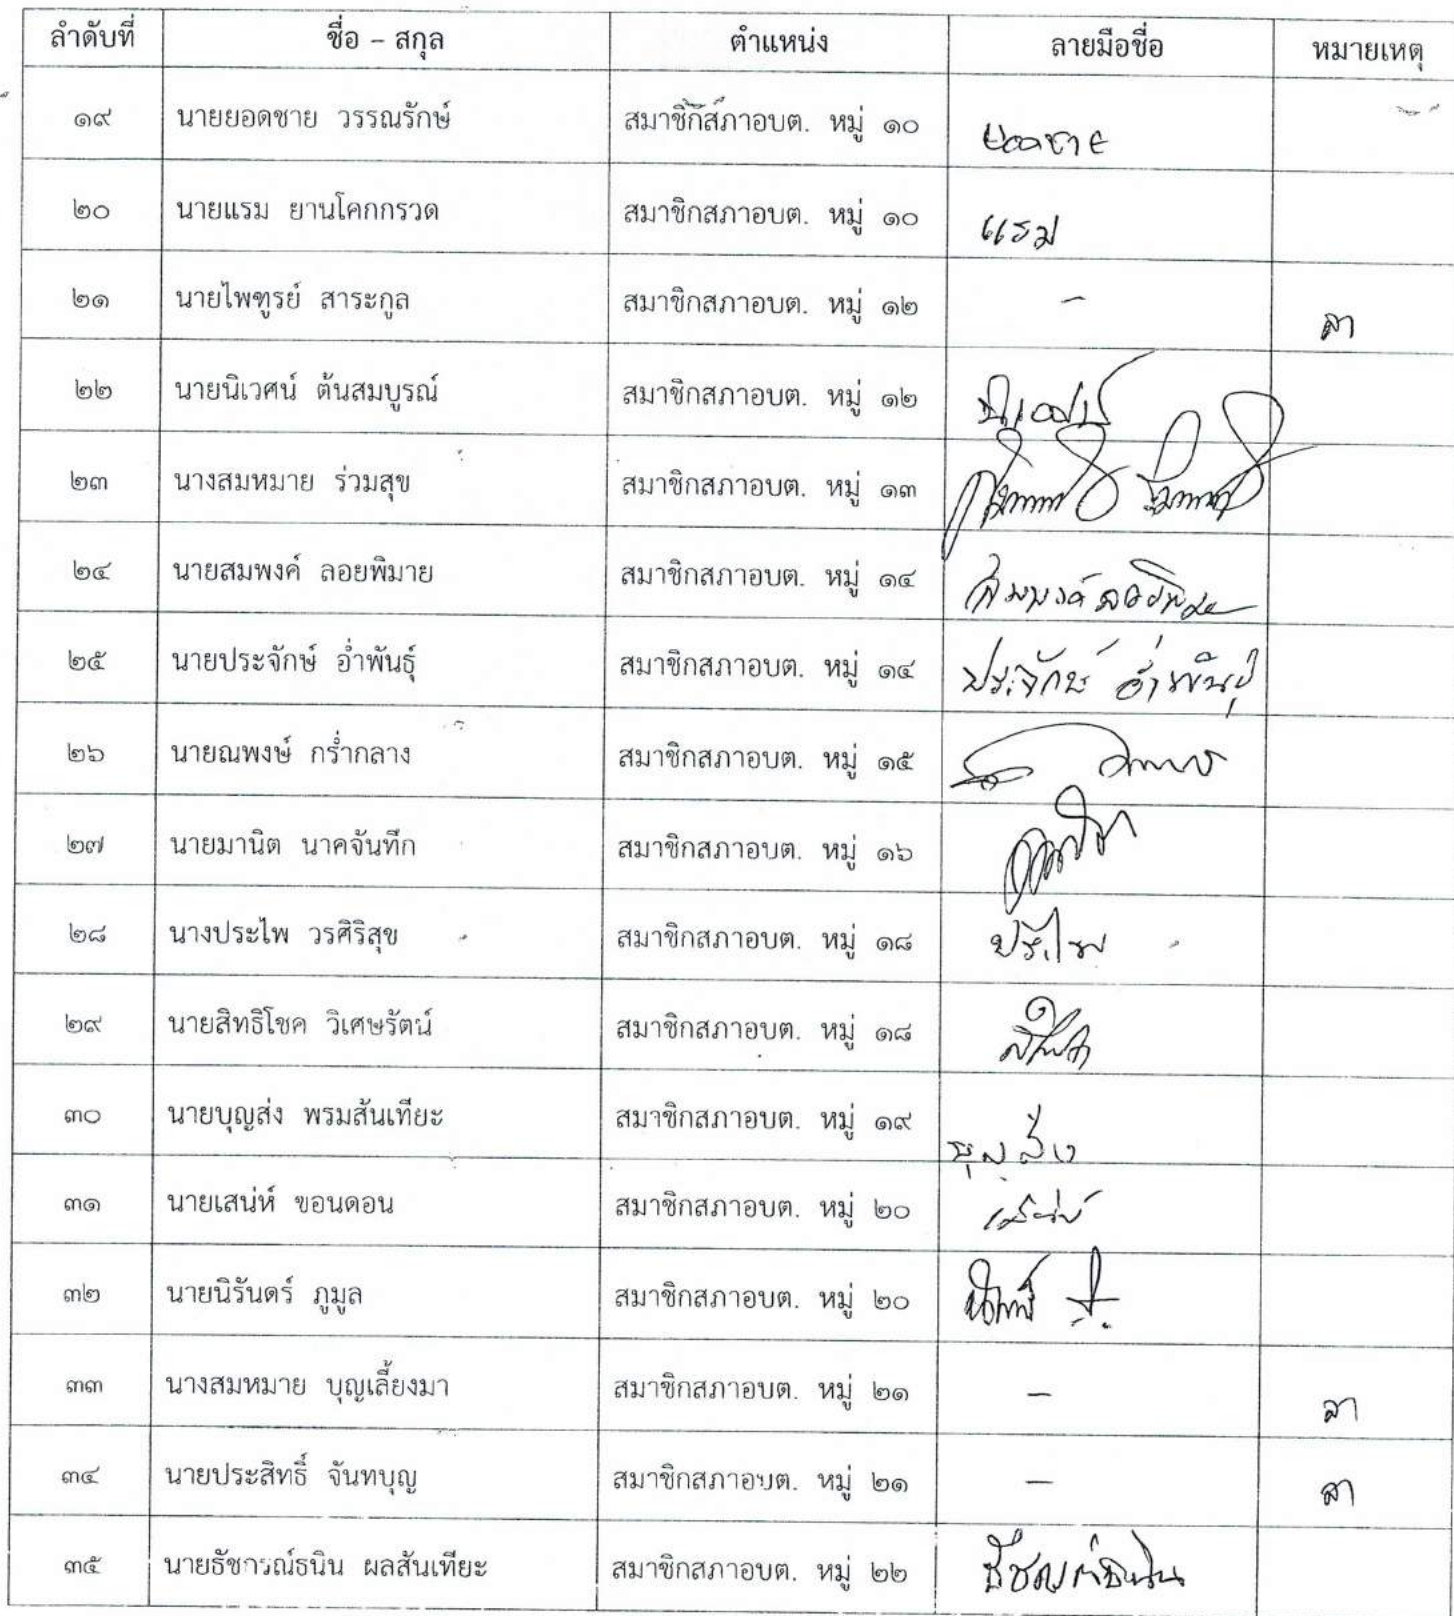 ลำดับที่ ชื่อ - สกุล ตำแหน่ง ลายมือชื่อ หมายเหตุ
๑๙ นายยอดชาย วรรณรักษ์ สมาชิกสภาอบต. หมู่ ๑๐ ยอดชาย
๒๐ นายแรม ยานโคกกรวด สมาชิกสภาอบต. หมู่ ๑๐ แรม
๒๑ นายไพฑูรย์ สาระกูล สมาชิกสภาอบต. หมู่ ๑๒ - ลา
๒๒ นายนิเวศน์ ต้นสมบูรณ์ สมาชิกสภาอบต. หมู่ ๑๒
๒๓ นางสมหมาย ร่วมสุข สมาชิกสภาอบต. หมู่ ๑๓
๒๔ นายสมพงค์ ลอยพิมาย สมาชิกสภาอบต. หมู่ ๑๔ สมพงค์ ลอยพิมาย
๒๕ นายประจักษ์ อ่ำพันธุ์ สมาชิกสภาอบต. หมู่ ๑๔ ประจักษ์ อ่ำพันธุ์
๒๖ นายณพงษ์ กร่ำกลาง สมาชิกสภาอบต. หมู่ ๑๕
๒๗ นายมานิต นาคจันทึก สมาชิกสภาอบต. หมู่ ๑๖
๒๘ นางประไพ วรศิริสุข สมาชิกสภาอบต. หมู่ ๑๘ ประไพ
๒๙ นายสิทธิโชค วิเศษรัตน์ สมาชิกสภาอบต. หมู่ ๑๘
๓๐ นายบุญส่ง พรมสันเทียะ สมาชิกสภาอบต. หมู่ ๑๙ บุญส่ง
๓๑ นายเสน่ห์ ขอนดอน สมาชิกสภาอบต. หมู่ ๒๐ เสน่ห์
๓๒ นายนิรันดร์ ภูมูล สมาชิกสภาอบต. หมู่ ๒๐
๓๓ นางสมหมาย บุญเลี้ยงมา สมาชิกสภาอบต. หมู่ ๒๑ - ลา
๓๔ นายประสิทธิ์ จันทบุญ สมาชิกสภาอบต. หมู่ ๒๑ - ลา
๓๕ นายธัชกรณ์ธนิน ผลสันเทียะ สมาชิกสภาอบต. หมู่ ๒๒